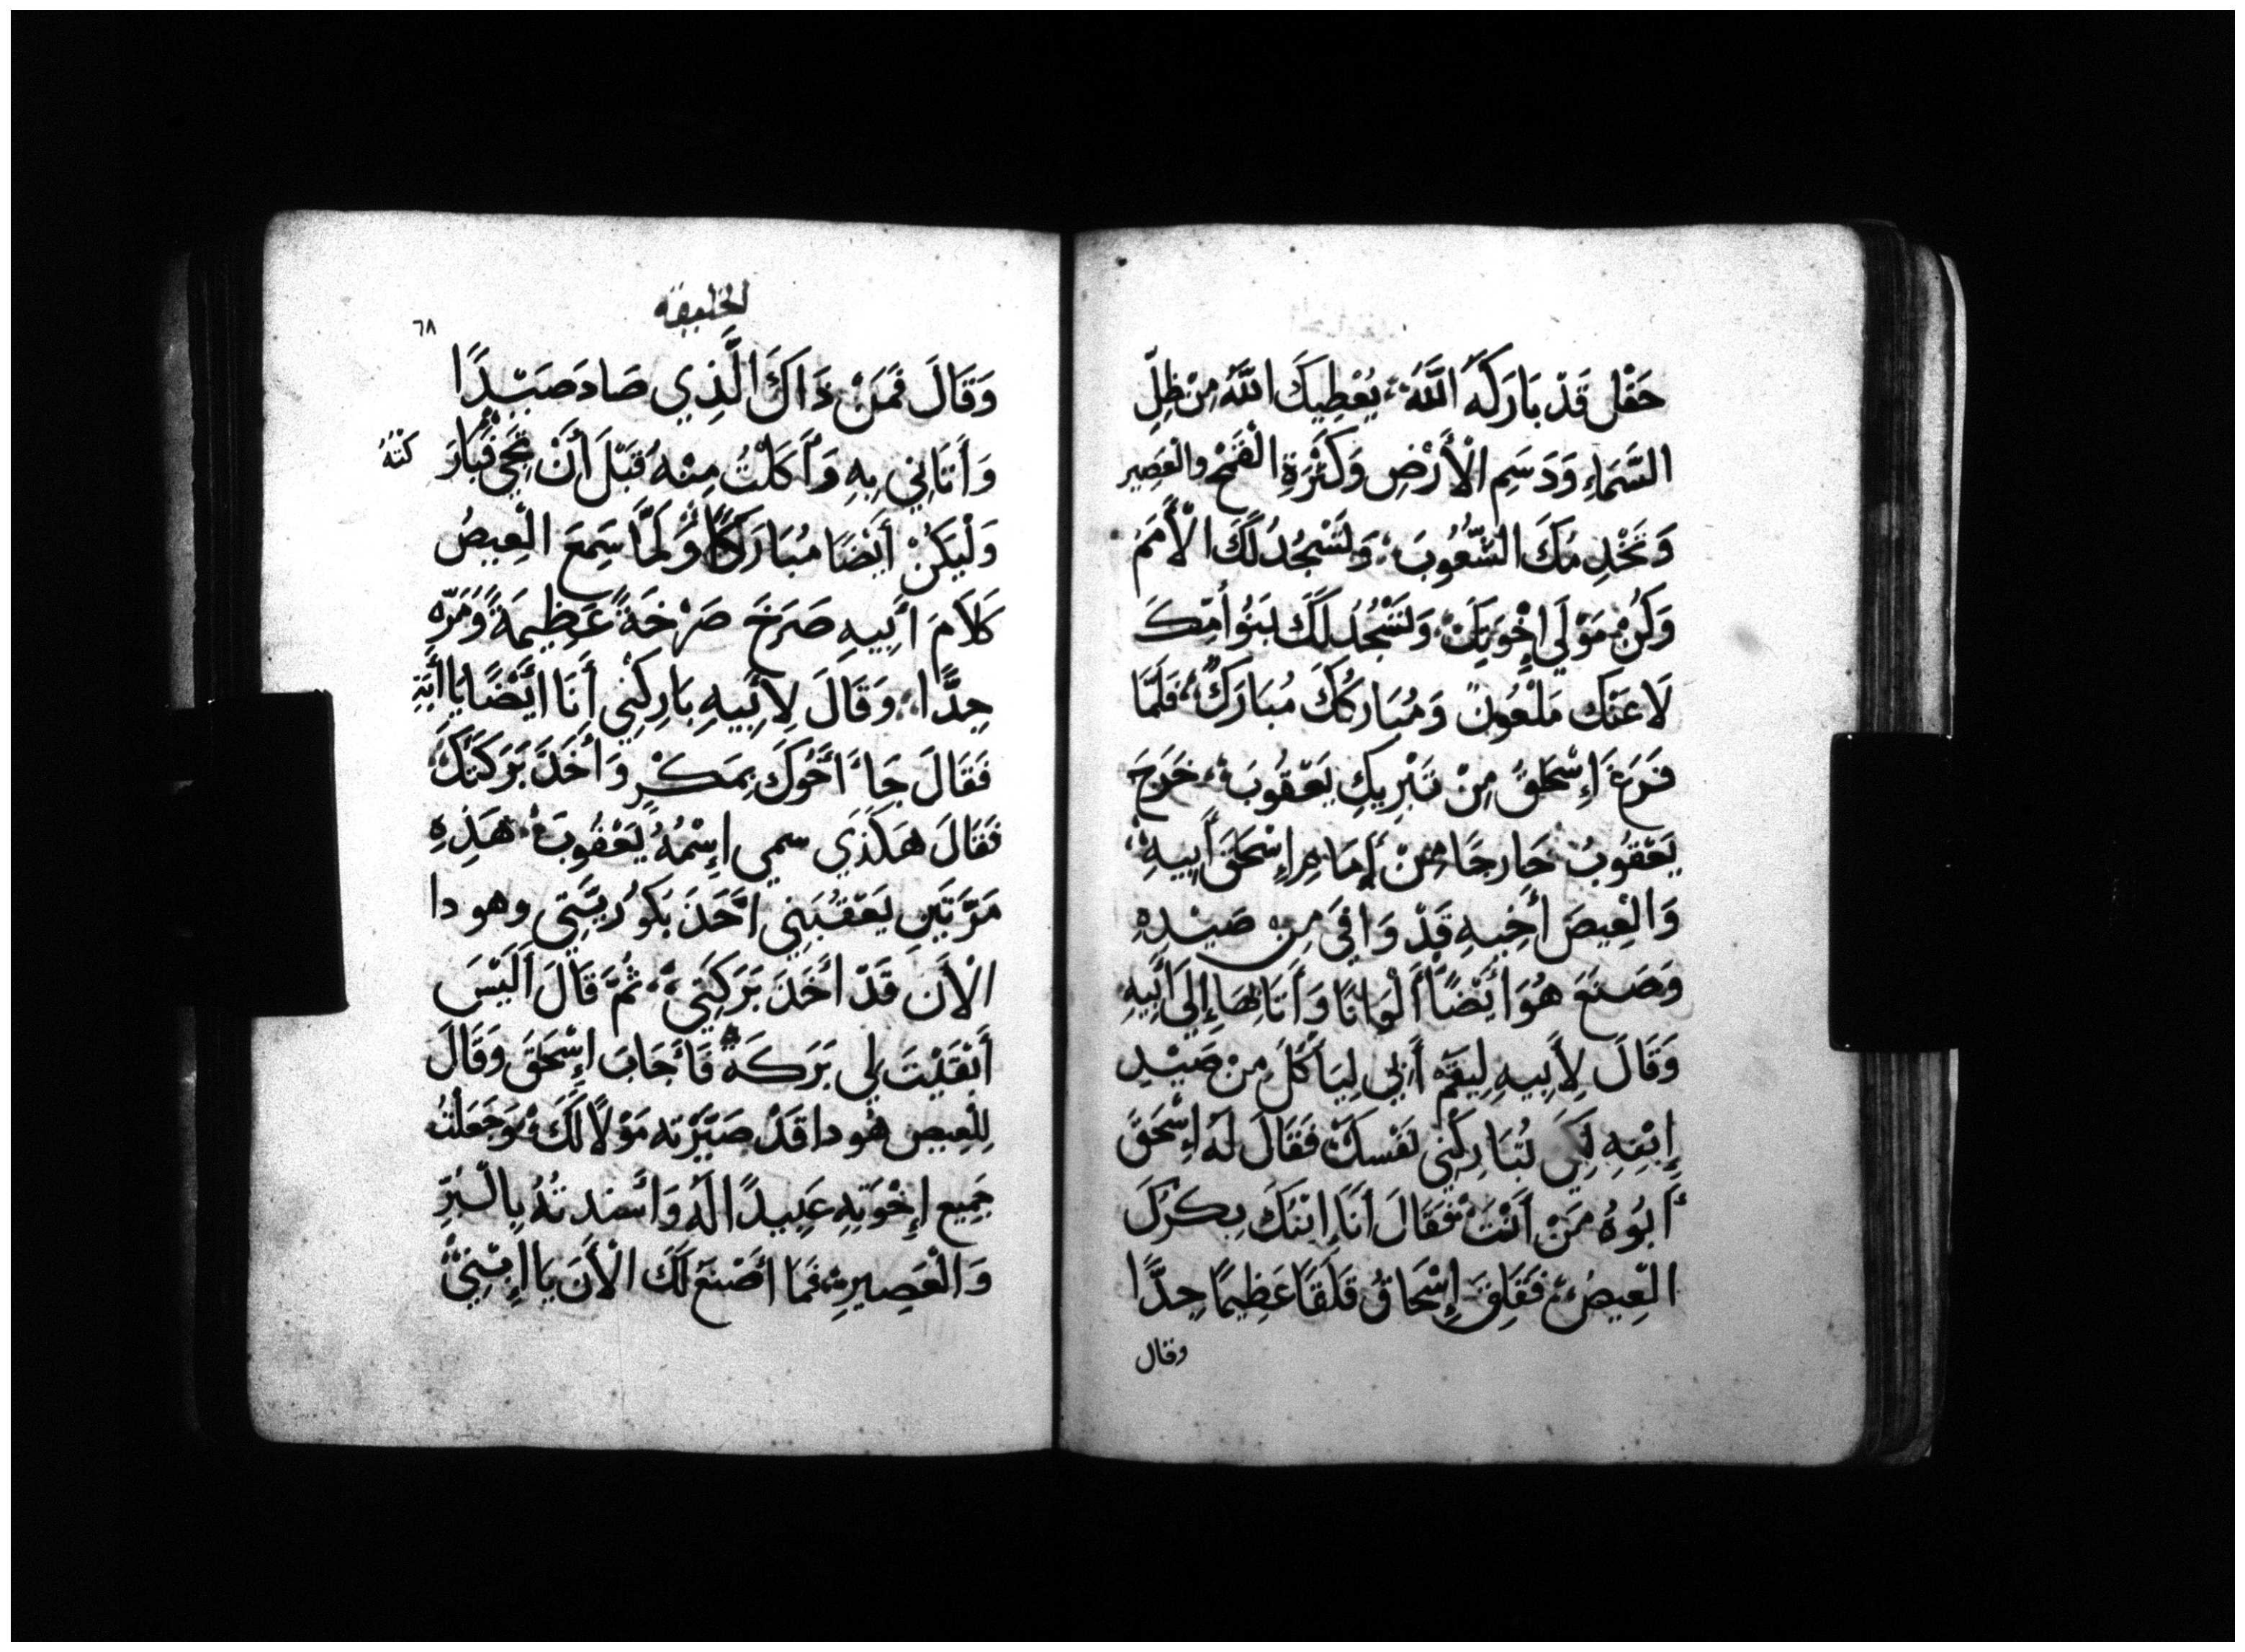 حَقْل قَدْ بَارَكَهُ اللَّهُ، يُعْطِيكَ اللَّهُ مِنْ ظِلِّ
السَّمَاءِ وَدَسَمِ الْأَرْضِ وَكَثْرَةِ الْقَمْحِ والْعَصِيرِ
وَتَخْدِمُكَ الشُّعُوبَ، وَلتَسْجُدُ لَكَ الْأُمَمَ
وَكُنْ مَوْلَى إِخْوَتِكَ، وَلتَسْجُدُ لَكَ بَنُو أُمِّكَ
لَاعَنَكَ مَلْعُونٌ وَمُبَارِكُكَ مُبَارَكٌ، فَلَمَّا
فَرَغَ إِسْحَقُ مِنْ تَبْرِيكِ يَعْقُوبَ، خَرَجَ
يَعْقُوبُ خَارجًا مِنْ أَمَامِ إِسْحَقَ أَبِيهِ
وَالْعِيصَ أَخِيهِ قَدْ وَافَى مِن صَيْدِهِ
وَصَنَعَ هُوَ أَيْضًا أَلْوَانًا وَأَتَا بِهَا إِلَى أَبِيهِ
وَقَالَ لِأَبِيهِ لِيَقُمْ أَبِي لِيَأْكُلَ مِنْ صَيْدِ
إِبْنِهِ لِكَي تُبَارِكَنِي نَفْسكَ فَقَالَ لَهُ إِسْحَقَ
أَبُوهُ مَنْ أَنْتَ فَقَالَ أَنَا إِبْنَكَ بِكْرَكَ
الْعِيصُ، فَقَلِقَ إِسْحَاقُ قَلَقًا عَظِيمًا جِدًّا
وقال
الخليقه
٦٨
وَقَالَ فَمَنْ ذَاكَ الَّذِي صَادَ صَيْدًا
وَأَتَانِي بِهِ وَأَكَلْتُ مِنْهُ قَبْلَ أَنْ تَجِي فَبَارَكْتهُ
وَلْيَكُنْ أَيْضًا مُبَارَكًا وَلَمَّا سَمِعَ الْعِيصُ
كَلَامَ أَبِيهِ صَرَخَ صَرْخَةً عَظِيمَةً وَمُرَّه
جِدًّا، وَقَالَ لِأَبِيهِ بَارِكْنِي أَنَا أَيْضًا يَا أَبَةِ
فَقَالَ جَاءَ أَخُوكَ بِمَكْرٍ وَأَخَذَ بَرَكَتَكَ،
فَقَالَ هَكَذَي سمي إِسْمُهُ يَعْقُوبَ، هَذِهِ
مَرَّتَيْنِ يَعْقُبَنِي أَخَذَ بَكُورِيَّتِي وهو دا
الْأَنَ قَدْ أَخَذَ بَرَكَتِي، ثُمَّ قَالَ أَلَيْسَ
أَبْقَيْتَ لِي بَرَكَةً فَأَجَابَ إِسْحَقَ وَقَالَ
لِلْعِيصِ هُو دا قَدْ صَيَّرْته مَوْلًا لَكَ، وَجَعَلْتُ
جَمِيع إِخْوَتِهِ عَبِيدًا لَهُ وَأَسْندتهُ بِالْبُرِّ
وَالْعَصِيرِ، فَمَا أَصْنَعُ لَكَ الْأَنَ يَا إِبْنِي